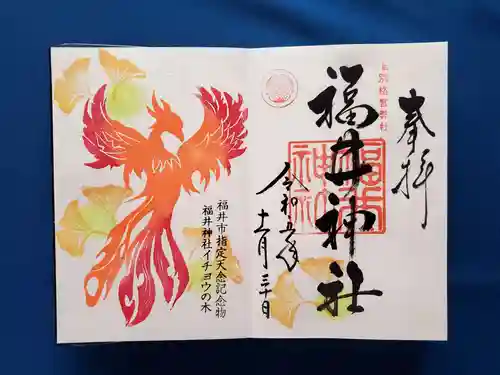 奉拝
元別格官幣社
福井神社
福井神社
令和五年
十一月三十日
福井市指定天念記念物
福井神社イチョウの木